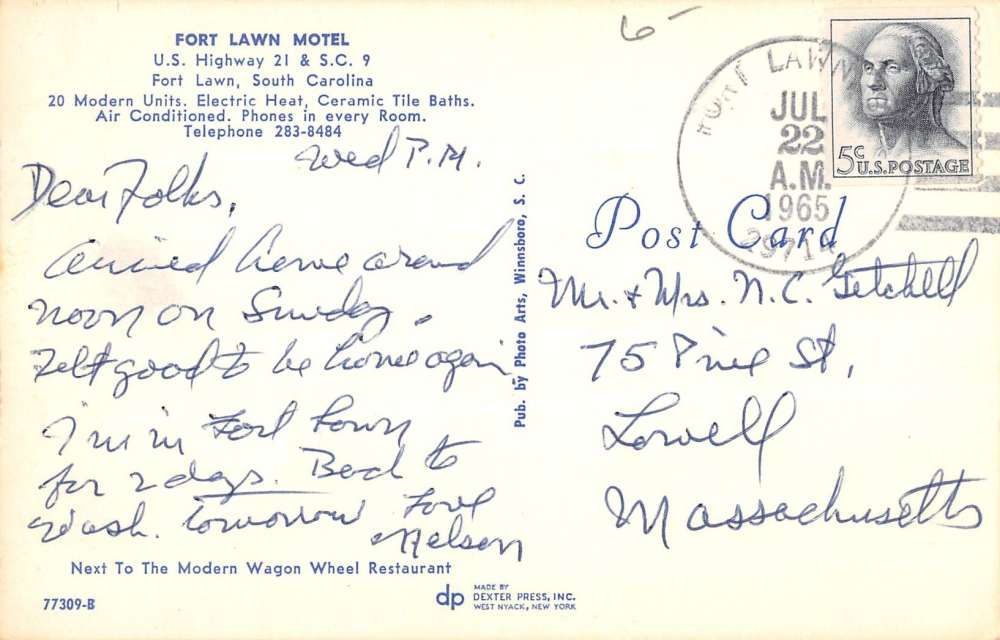 FORT LAWN MOTEL
U.S. Highway 21 & S.C. 9
Fort Lawn, South Carolina
20 Modern Units. Electric Heat, Ceramic Tile Baths.
Air Conditioned. Phones in every Room.
Telephone 283-8484
6-
FORT LAWN
JUL
22
A.M.
1965
5c U.S. POSTAGE
Wed P.M.
Dear Folks,
Arrived home around
noon on Sunday.
Felt good to be home again
I'm in Fort Lawn
for 2 days. Back to
Wash. tomorrow Love
Nelson
Next To The Modern Wagon Wheel Restaurant
77309-B
Pub. by Photo Arts, Winnsboro, S. C.
Post Card
Mr. & Mrs. N.C. Getchell
75 Pine St,
Lowell
Massachusetts
dp MADE BY
DEXTER PRESS, INC.
WEST NYACK, NEW YORK